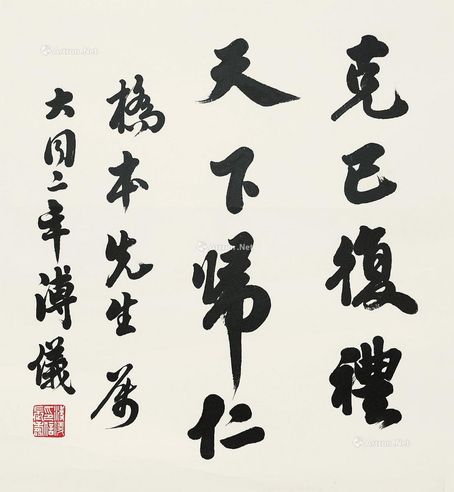 克己復禮
天下歸仁
橋本先生屬
大同二年溥儀
Artron.Net
Artron.Net
Artron.Net